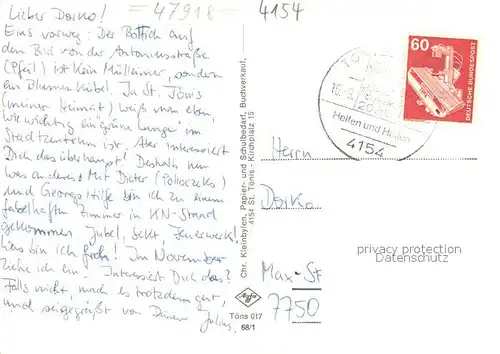 =47918=
4154
Lieber Daiko!
Eins vorweg: Der Bottich auf
dem Bild von der Antoniusstraße
(Pfeil) ist kein Mülleimer, sondern
ein Blumenkübel. In St. Tönis
(meiner Heimat) weiß man eben,
wie wichtig ein grüne Lunge im
Stadtzentrum ist. Aber interessiert
Dich das überhaupt? Deshalb nun
was anderes: Mit Dieter
und Georgs Hilfe bin ich zu einem
fabelhaften Zimmer in KN-Strand
gekommen. Jubel, Sekt, Feuerwerk!
Was bin ich froh! Im November
ziehe ich ein. Interessiert Dich das?
Falls nicht, mach es trotzdem gut,
und sei gegrüßt von Deinem Julius.
Chr. Kleinbylen, Papier- und Schulbedarf, Buchverkauf,
4154 St. Tönis - Kirchplatz 15
Agfa
Töns 017
68/1
60
DEUTSCHE BUNDESPOST
Helfen und Heilen
4154
Herrn
Daiko
privacy protection
Datenschutz
Max-St
7750